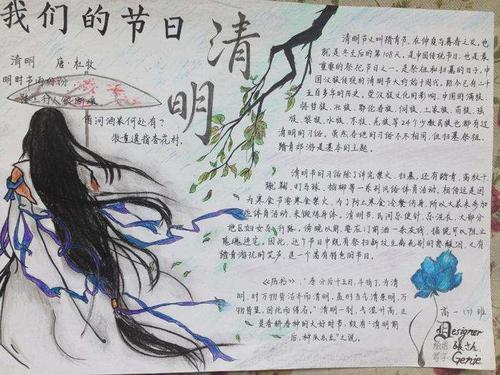 我们的节日
清明
清明 唐·杜牧
明时节雨纷纷
路上行人欲断魂
借问酒家何处有?
牧童遥指杏花村。
清明节又叫踏青节,在仲春与暮春之交,也
就是冬至后的第108天,是中国传统节日,也是最
重要的祭祀节日之一,是祭祖和扫墓的日子。中
国汉族传统的清明节大约始于周代,距今已有二千
五百多年的历史。受汉族文化的影响,中国的满族、
赫哲族、壮族、鄂伦春族、侗族、土家族、苗族、瑶
族、黎族、水族、京族、羌族等24个少数民族也都有过
清明节的习俗。虽然各地习俗不尽相同,但扫墓祭祖、
踏青郊游是基本的主题。
清明节的习俗除了讲究禁火、扫墓,还有踏青、荡秋千、
蹴鞠、打马球、插柳等一系列风俗体育活动。相传这是因
为寒食节要寒食禁火,为了防止寒食冷餐伤身,所以大家来参加
些体育活动,来锻炼身体。清明节,民间忌使针,忌洗衣,大部分
地区妇女忌行路。傍晚以前,要在门前洒一条灰线,据说可以阻止
鬼魂进宅。因此,这个节日中既有祭扫新坟生离死别的悲酸泪,又有
踏青游玩的笑声,是一个富有特色的节日。
《历书》:"春分后十五日,斗指丁,为清
明,时万物皆洁齐而清明,盖时当气清景明,万
物皆显,因此而得名。"清明一到,气温升高,正
是春耕春种的大好时节,故有"清明前
后,种瓜点豆"之说。
高一(7)班
Designer
Genie